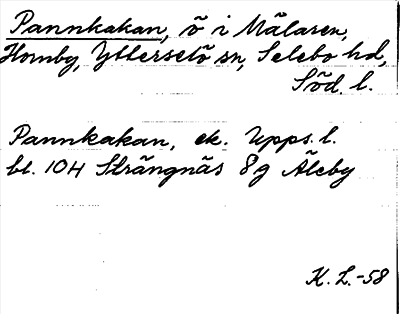 Pannkakan, ö i Mälaren,
Hornby, Ytterselö sn, Selebo hd,
Söd. l.
Pannkakan, ek. Upps. l.
bl. 104 Strängnäs 8g Åleby
K. L.-58